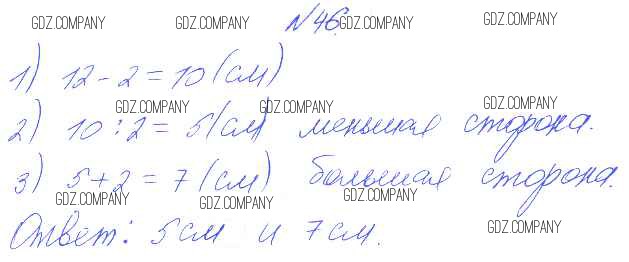 №46.
1) 12 - 2 = 10 (см)
2) 10 : 2 = 5 (см) меньшая сторона.
3) 5 + 2 = 7 (см) большая сторона.
Ответ: 5 см и 7 см.
GDZ.COMPANY GDZ.COMPANY GDZ.COMPANY GDZ.COMPANY
GDZ.COMPANY GDZ.COMPANY GDZ.COMPANY
GDZ.COMPANY GDZ.COMPANY GDZ.COMPANY GDZ.COMPANY
GDZ.COMPANY